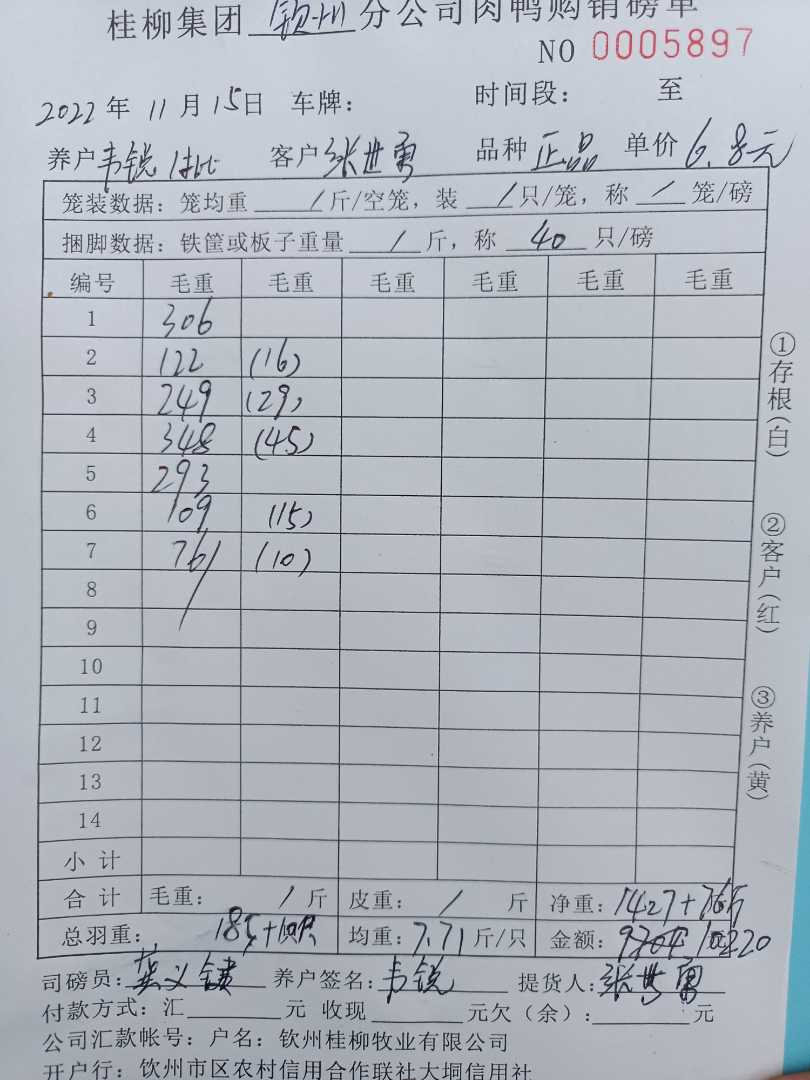 桂柳集团 钦州 分公司肉鸭购销磅单
NO 0005897
2022年 11月 15日 车牌： 时间段： 至
养户 韦锐 客户 张世勇 品种 正品 单价 6.8元
笼装数据：笼均重 / 斤/空笼，装 / 只/笼，称 / 笼/磅
捆脚数据：铁筐或板子重量 / 斤，称 40 只/磅
编号 毛重 毛重 毛重 毛重 毛重 毛重
1 306
2 122 (16)
3 249 (29)
4 348 (45)
5 293
6 109 (15)
7 76 (10)
8
9
10
11
12
13
14
小计
合计 毛重： / 斤 皮重： / 斤 净重：1427+76斤
总羽重： 185+10只 均重：7.71 斤/只 金额： 10220
司磅员： 养户签名：韦锐 提货人：张世勇
付款方式：汇 元 收现 元欠（余）： 元
公司汇款帐号：户名：钦州桂柳牧业有限公司
开户行：钦州市区农村信用合作联社大垌信用社
①存根（白）
②客户（红）
③养户（黄）